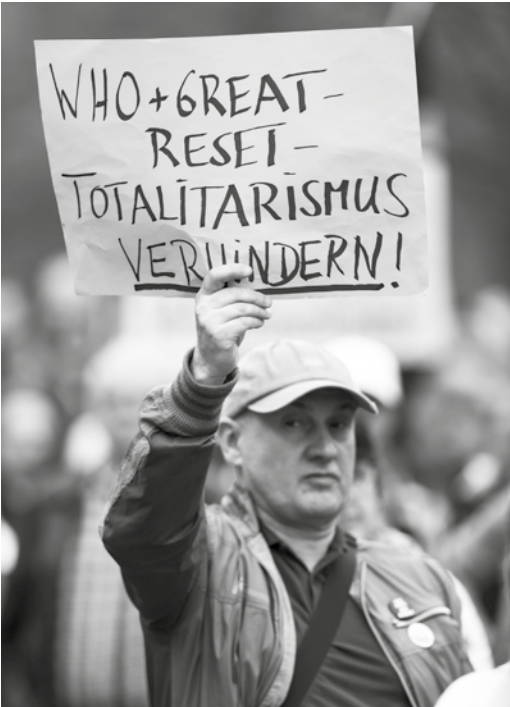 WHO+GREAT-
RESET-
TOTALITARISMUS
VERHINDERN!